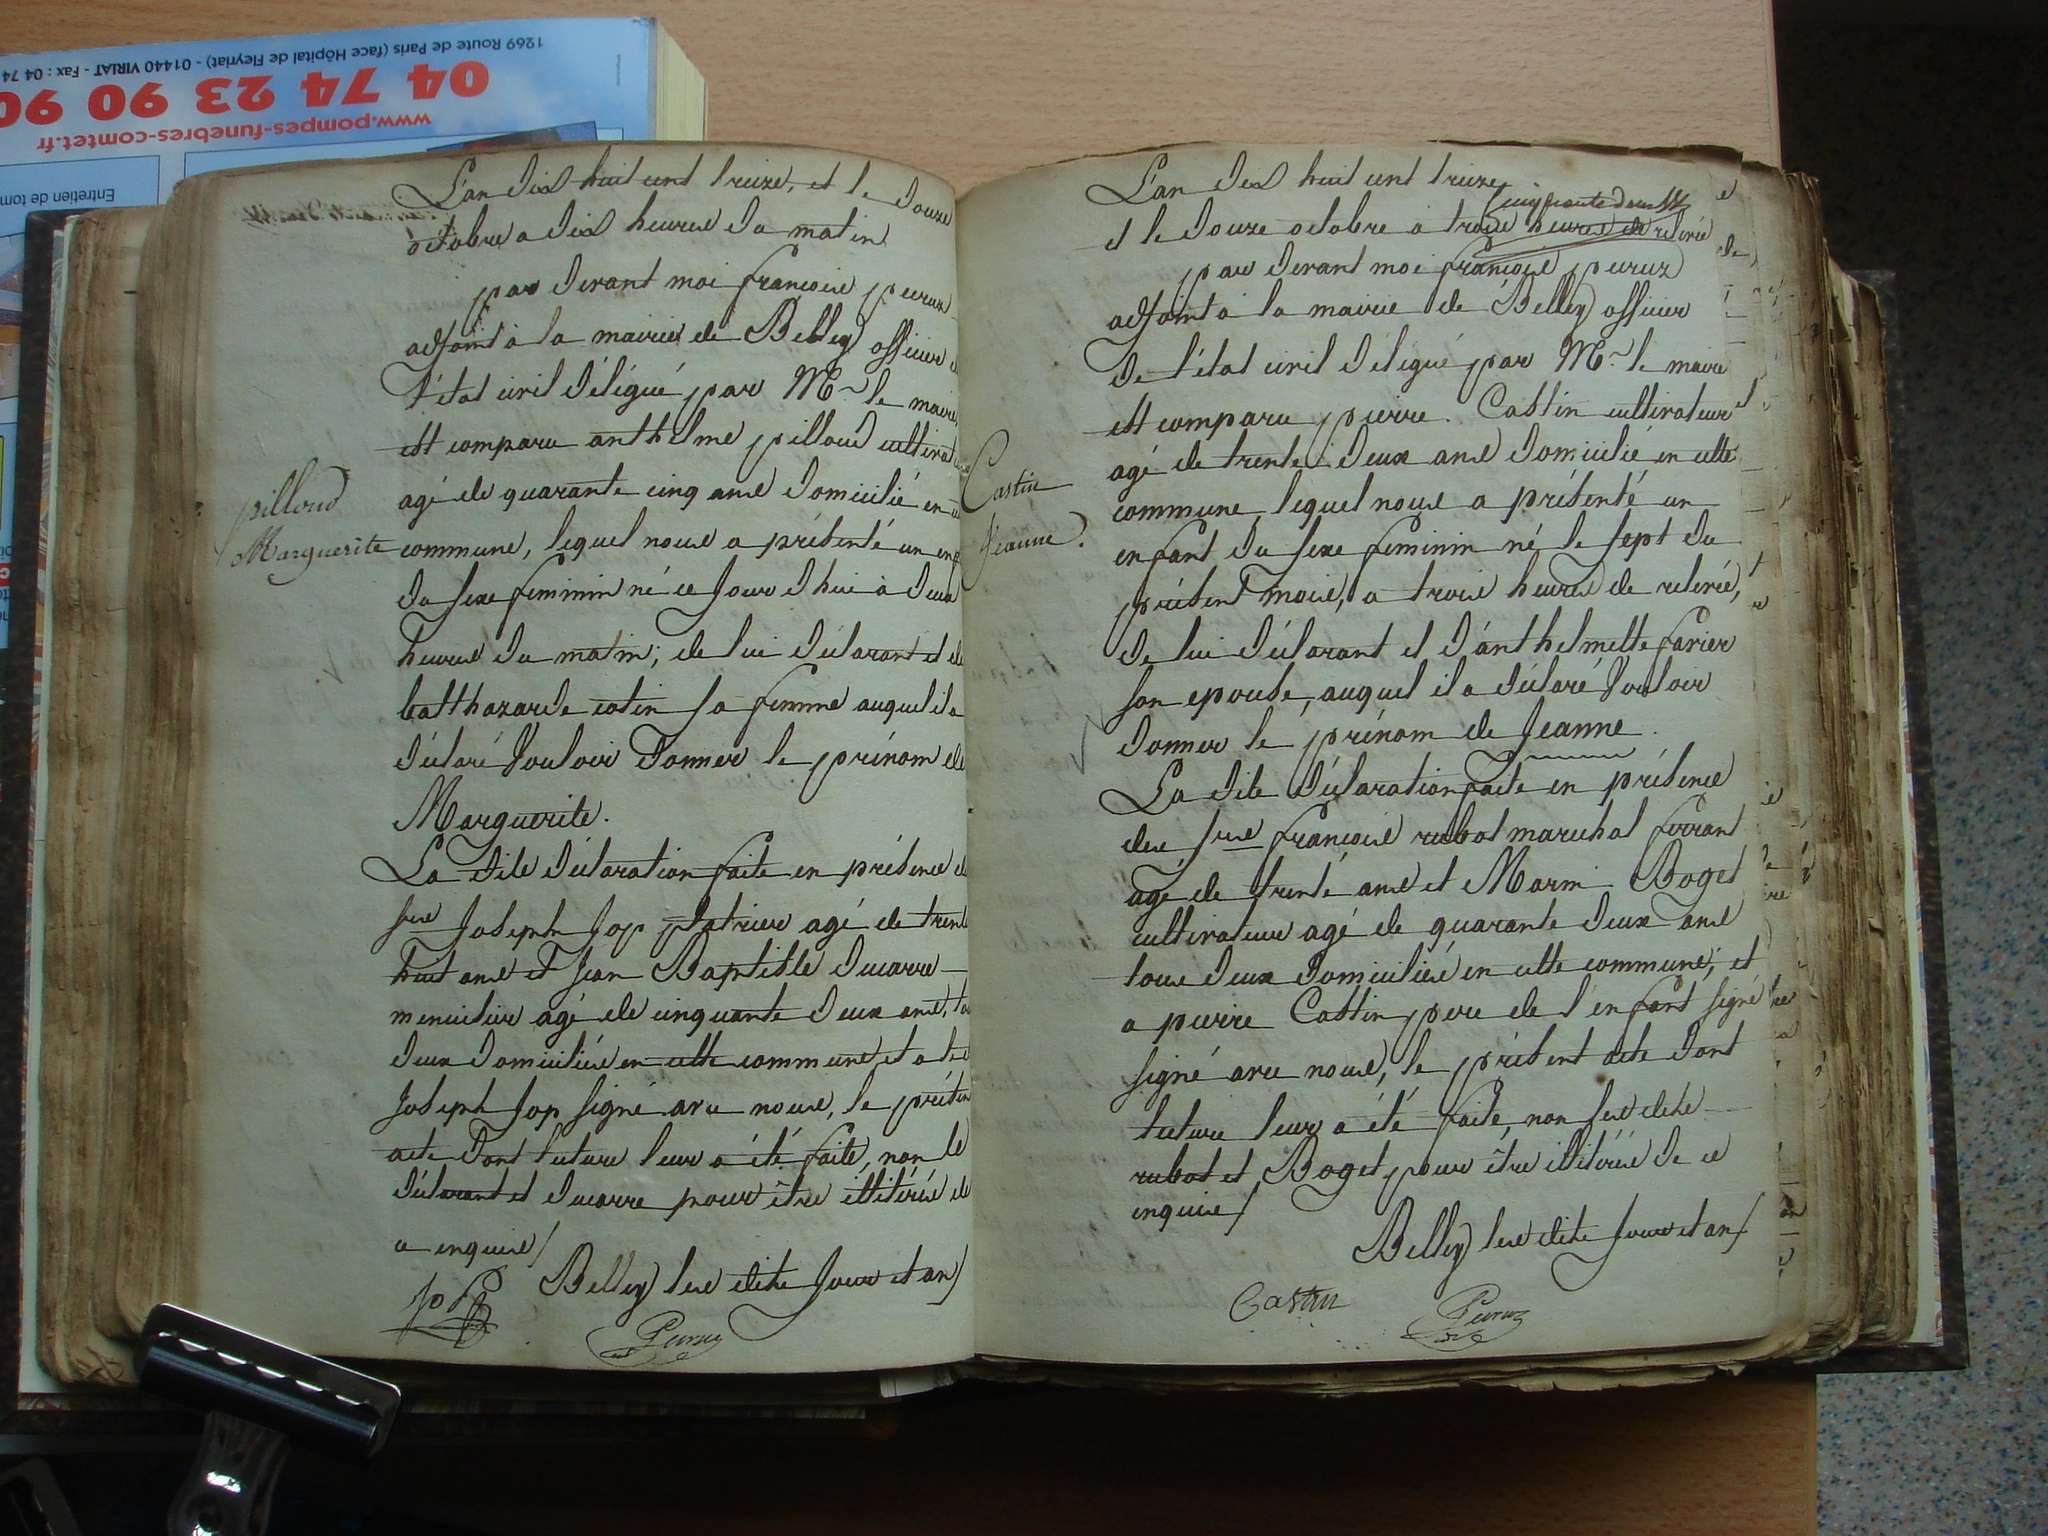 1269 Route de Paris (face Hôpital de Fleyriat) - 01440 VIRIAT - Fax : 04 74
04 74 23 90 90
www.pompes-funebres-comtet.fr
Entretien de tom
L'an dix huit cent treize, et le douze
octobre a dix heures du matin
par devant moi françois peruz
adjoint à la mairie de Belley officier
l'état civil délégué par Mr le maire
est comparu anthelme pilloud cultivat
agé de quarante cinq ans domicilié en
pilloud
Marguerite
commune, lequel nous a présenté un enf
du sexe feminin né ce jour d'hui à deux
heures du matin, de lui déclarant et de
balthazarde catin sa femme auquel il a
déclaré vouloir donner le prénom de
Marguerite.
La dite déclaration faite en présence de
srs Joseph Jop platrier agé de trente
huit ans et Jean Baptiste ducarre
menuisier agé de cinquante deux ans, to
deux domiciliés en cette commune et a le
Joseph Jop signé avec nous, le présen
acte dont lecture leur a été faite, non le
déclarant et ducarre pour être illitérés de
ce enquis/
Belley les dits jour et an/
Peruz
L'an dix huit cent treize
et le douze octobre a trois heures de relevée
par devant moi françois peruz
adjoint à la mairie de Belley officier
de l'état civil délégué par Mr le maire
est comparu pierre Castin cultivateur
agé de trente deux ans domicilié en cette
Castin
Jeanne.
commune lequel nous a présenté un
enfant du sexe feminin né le sept du
présent mois, a trois heures de relevée,
de lui déclarant et d'anthelmette favier
son epouse, auquel il a déclaré vouloir
donner le prénom de Jeanne.
La dite déclaration faite en présence
des srs françois rubat marechal ferrant
agé de trente ans et Marin Boget
cultivateur agé de quarante deux ans
tous deux domiciliés en cette commune, et
a pierre Castin pere de l'enfant signé
signé avec nous, le présent acte dont
lecture leur a été faite, non les dits
rubat et Boget pour être illitérés de ce
enquis/
Belley les dits jour et an/
Castin
Peruz